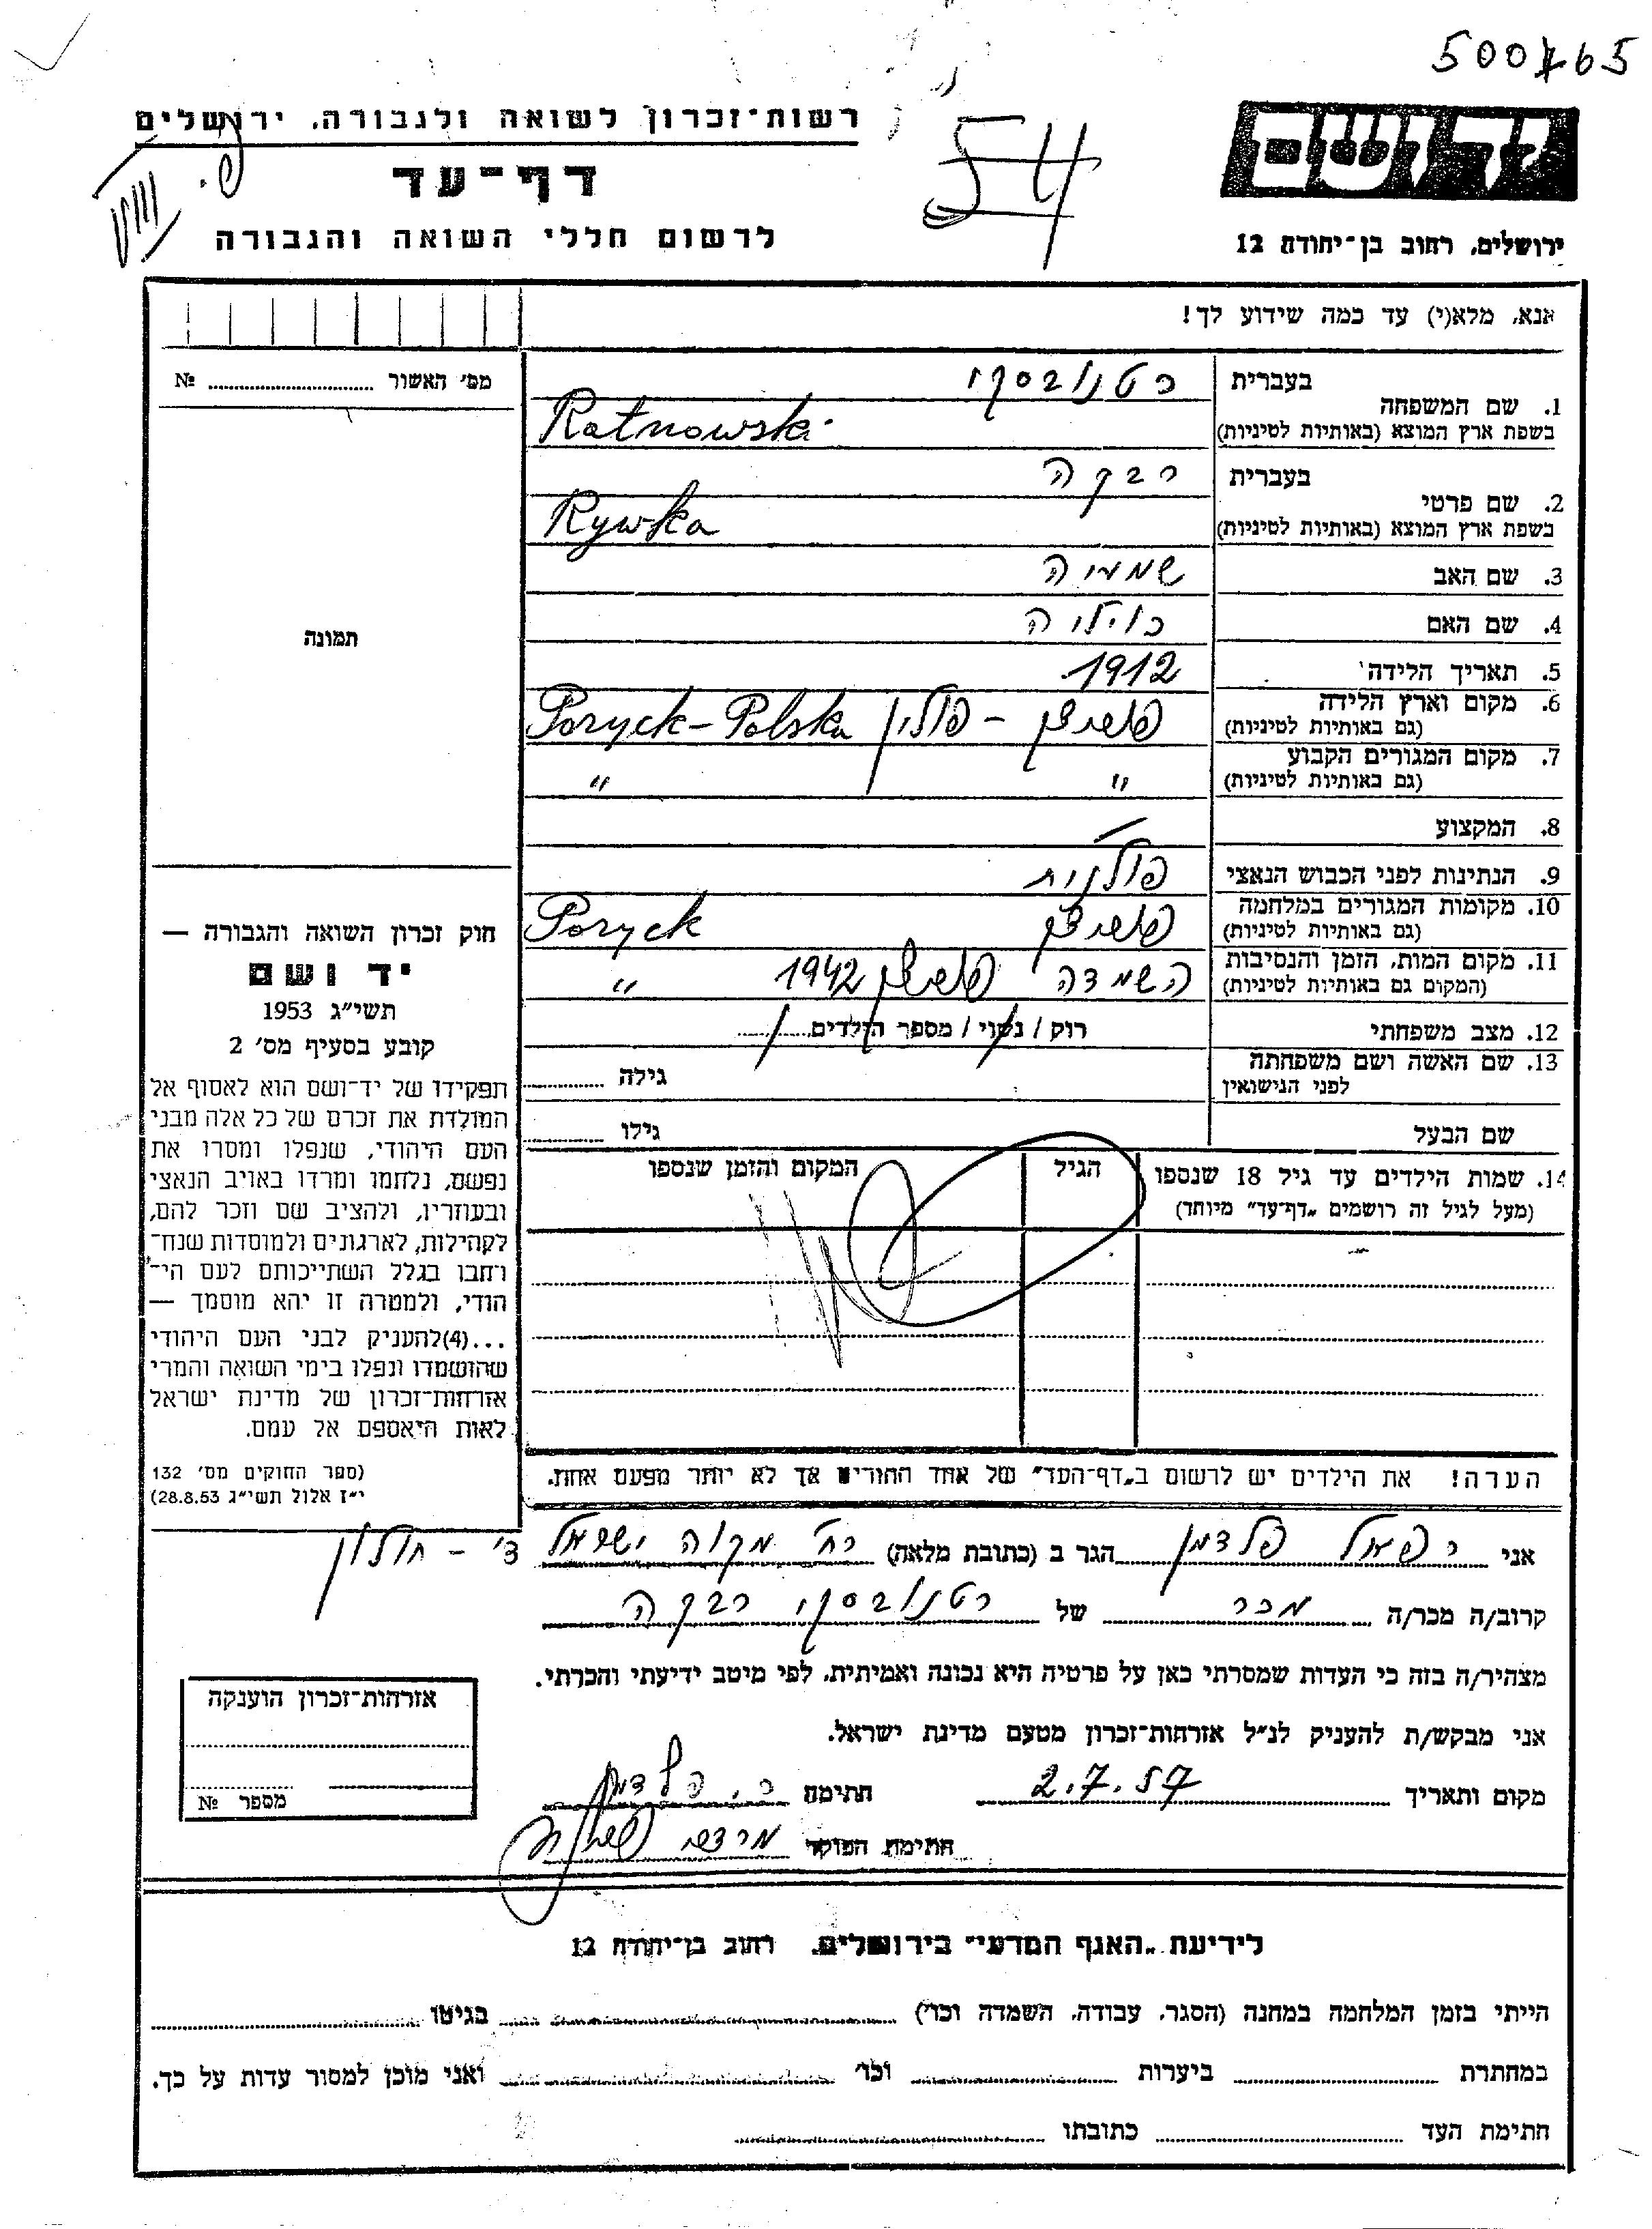 500765
רשות־זכרון לשואה ולגבורה, ירושלים
54
ידושם
דף־עד
לרשום חללי השואה והגבורה
ירושלים, רחוב בן־יהודה 12
אנא, מלא(י) עד כמה שידוע לך!
מס׳ האשור ........ №
תמונה
בעברית רטנובסקי
1. שם המשפחה
בשפת ארץ המוצא (באותיות לטיניות) Ratnowski
בעברית רבקה
2. שם פרטי
בשפת ארץ המוצא (באותיות לטיניות) Rywka
3. שם האב שמעיה
4. שם האם
5. תאריך הלידה 1912
6. מקום וארץ הלידה פוריצק - פולין Poryck - Polska
(גם באותיות לטיניות)
7. מקום המגורים הקבוע " "
(גם באותיות לטיניות)
8. המקצוע —
9. הנתינות לפני הכבוש הנאצי פולנית
10. מקומות המגורים במלחמה פוריצק Poryck
(גם באותיות לטיניות)
11. מקום המות, הזמן והנסיבות השמדה פוריצק 1942 "
(המקום גם באותיות לטיניות)
12. מצב משפחתי רוק / נשוי / מספר הילדים ........
13. שם האשה ושם משפחתה גילה ........
לפני הנישואין
שם הבעל גילו ........
14. שמות הילדים עד גיל 18 שנספו הגיל המקום והזמן שנספו
(מעל לגיל זה רושמים „דף־עד" מיוחד)
הערה! את הילדים יש לרשום ב„דף־העד" של אחד ההורים אך לא יותר מפעם אחת.
חוק זכרון השואה והגבורה —
יד ושם
תשי״ג 1953
קובע בסעיף מס׳ 2
תפקידו של יד־ושם הוא לאסוף אל
המולדת את זכרם של כל אלה מבני
העם היהודי, שנפלו ומסרו את
נפשם, נלחמו ומרדו באויב הנאצי
ובעוזריו, ולהציב שם וזכר להם,
לקהילות, לארגונים ולמוסדות שנח־
רחבו בגלל השתייכותם לעם הי־
הודי, ולמטרה זו יהא מוסמך —
...(4)להעניק לבני העם היהודי
שהושמדו ונפלו בימי השואה והמרי
אזרחות־זכרון של מדינת ישראל
לאות היאספם אל עמם.
(ספר החוקים מס׳ 132
י״ז אלול תשי״ג 28.8.53)
אני רפאל פלדמן הגר ב (כתובת מלאה) רח׳ מקוה ישראל ד׳ - חולון
קרוב/ה מכר/ה מכר של רטנובסקי רבקה
מצהיר/ה בזה כי העדות שמסרתי כאן על פרטיה היא נכונה ואמיתית, לפי מיטב ידיעתי והכרתי.
אני מבקש/ת להעניק לנ״ל אזרחות־זכרון מטעם מדינת ישראל.
מקום ותאריך 2.7.57 חתימה ר. פלדמן
חתימת הפוקד
אזרחות־זכרון הוענקה
מספר №
לידיעת „האגף המדעי" בירושלים, רחוב בן־יהודה 12
הייתי בזמן המלחמה במחנה (הסגר, עבודה, השמדה וכו׳) ........ בגיטו ........
במחתרת ........ ביערות ........ וכו׳ ........ ואני מוכן למסור עדות על כך.
חתימת העד ........ כתובתו ........